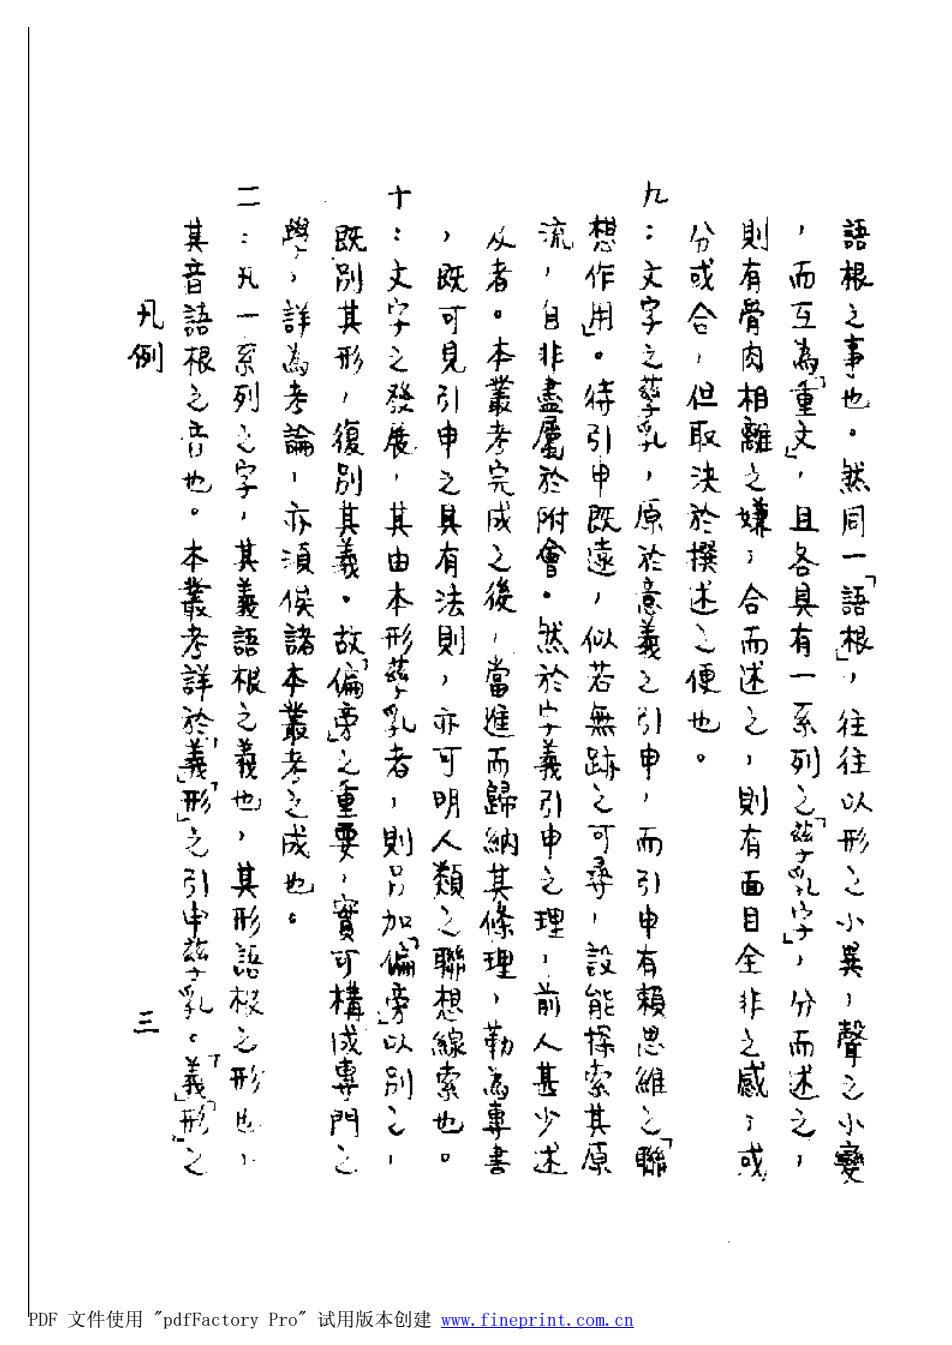 語根之事也。然同一「語根」，往往以形之小異，聲之小變
，而互為「重文」，且各具有一系列之「孳乳字」，分而述之，
則有骨肉相離之嫌；合而述之，則有面目全非之感；或
分或合，但取決於撰述之便也。
九：文字之孳乳，原於意義之引申，而引申有賴思維之「聯
想作用」。待引申既遠，似若無跡之可尋，設能探索其原
流，自非盡屬於附會。然於字義引申之理，前人甚少述
及者。本叢考完成之後，當進而歸納其條理，勒為專書
，既可見引申之具有法則，亦可明人類之聯想線索也。
十：文字之發展，其由本形孳乳者，則另加「偏旁」以別之，
既別其形，復別其義。故「偏旁」之重要，實可構成專門之
學，詳為考論，亦須俟諸本叢考之成也。
二：凡一系列之字，其義語根之義也，其形語根之形也，
其音語根之音也。本叢考詳於「義」「形」之引申孳乳。「義」「形」之
凡例
三
PDF 文件使用 "pdfFactory Pro" 试用版本创建 www.fineprint.com.cn